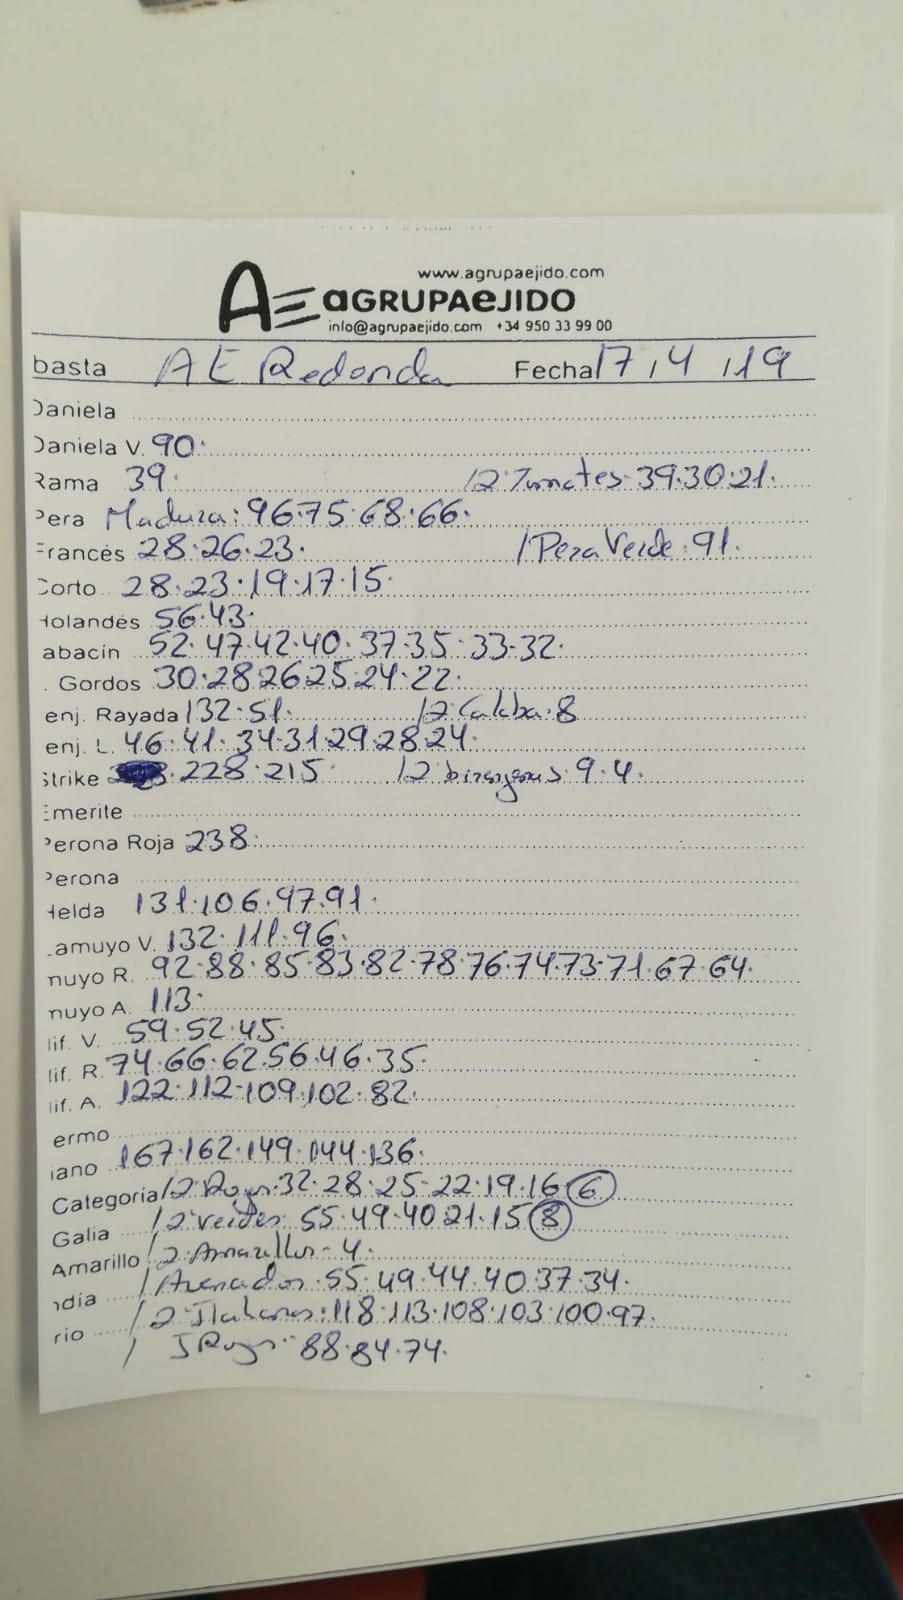 www.agrupaejido.com
AE aGRUPAeJIDO
info@agrupaejido.com +34 950 33 99 00
basta AE Redonda Fecha 17,4,19
Daniela
Daniela V. 90.
Rama 39. 12 Tomates. 39.30.21.
Pera Madura: 96.75.68.66.
Francés 28.26.23. / Pera Verde. 91.
Corto 28.23.19.17.15.
Holandés 56.43.
abacín 52.47.42.40.37.35.33.32.
. Gordos 30.28.26.25.24.22.
enj. Rayada 132.51. 12 Calaba. 8
enj. L. 46.41.34.31.29.28.24.
Strike .228.215 12 9.4.
Emerite
Perona Roja 238.
Perona
Helda 131.106.97.91.
Lamuyo V. 132.111.96.
muyo R. 92.88.85.83.82.78.76.74.73.71.67.64.
muyo A. 113.
lif. V. 59.52.45.
lif. R. 74.66.62.56.46.35.
lif. A. 122.112.109.102.82.
ermo
iano 167.162.149.144.136.
Categoria /2 Rojos. 32.28.25.22.19.16 6
Galia /2 Verdes. 55.49.40.21.15 8
Amarillo /2 Amarillos - 4.
ndía / 55.49.44.40.37.34.
rio /2 Italianos: 118.113.108.103.100.97.
/ I Rojos: 88.84.74.